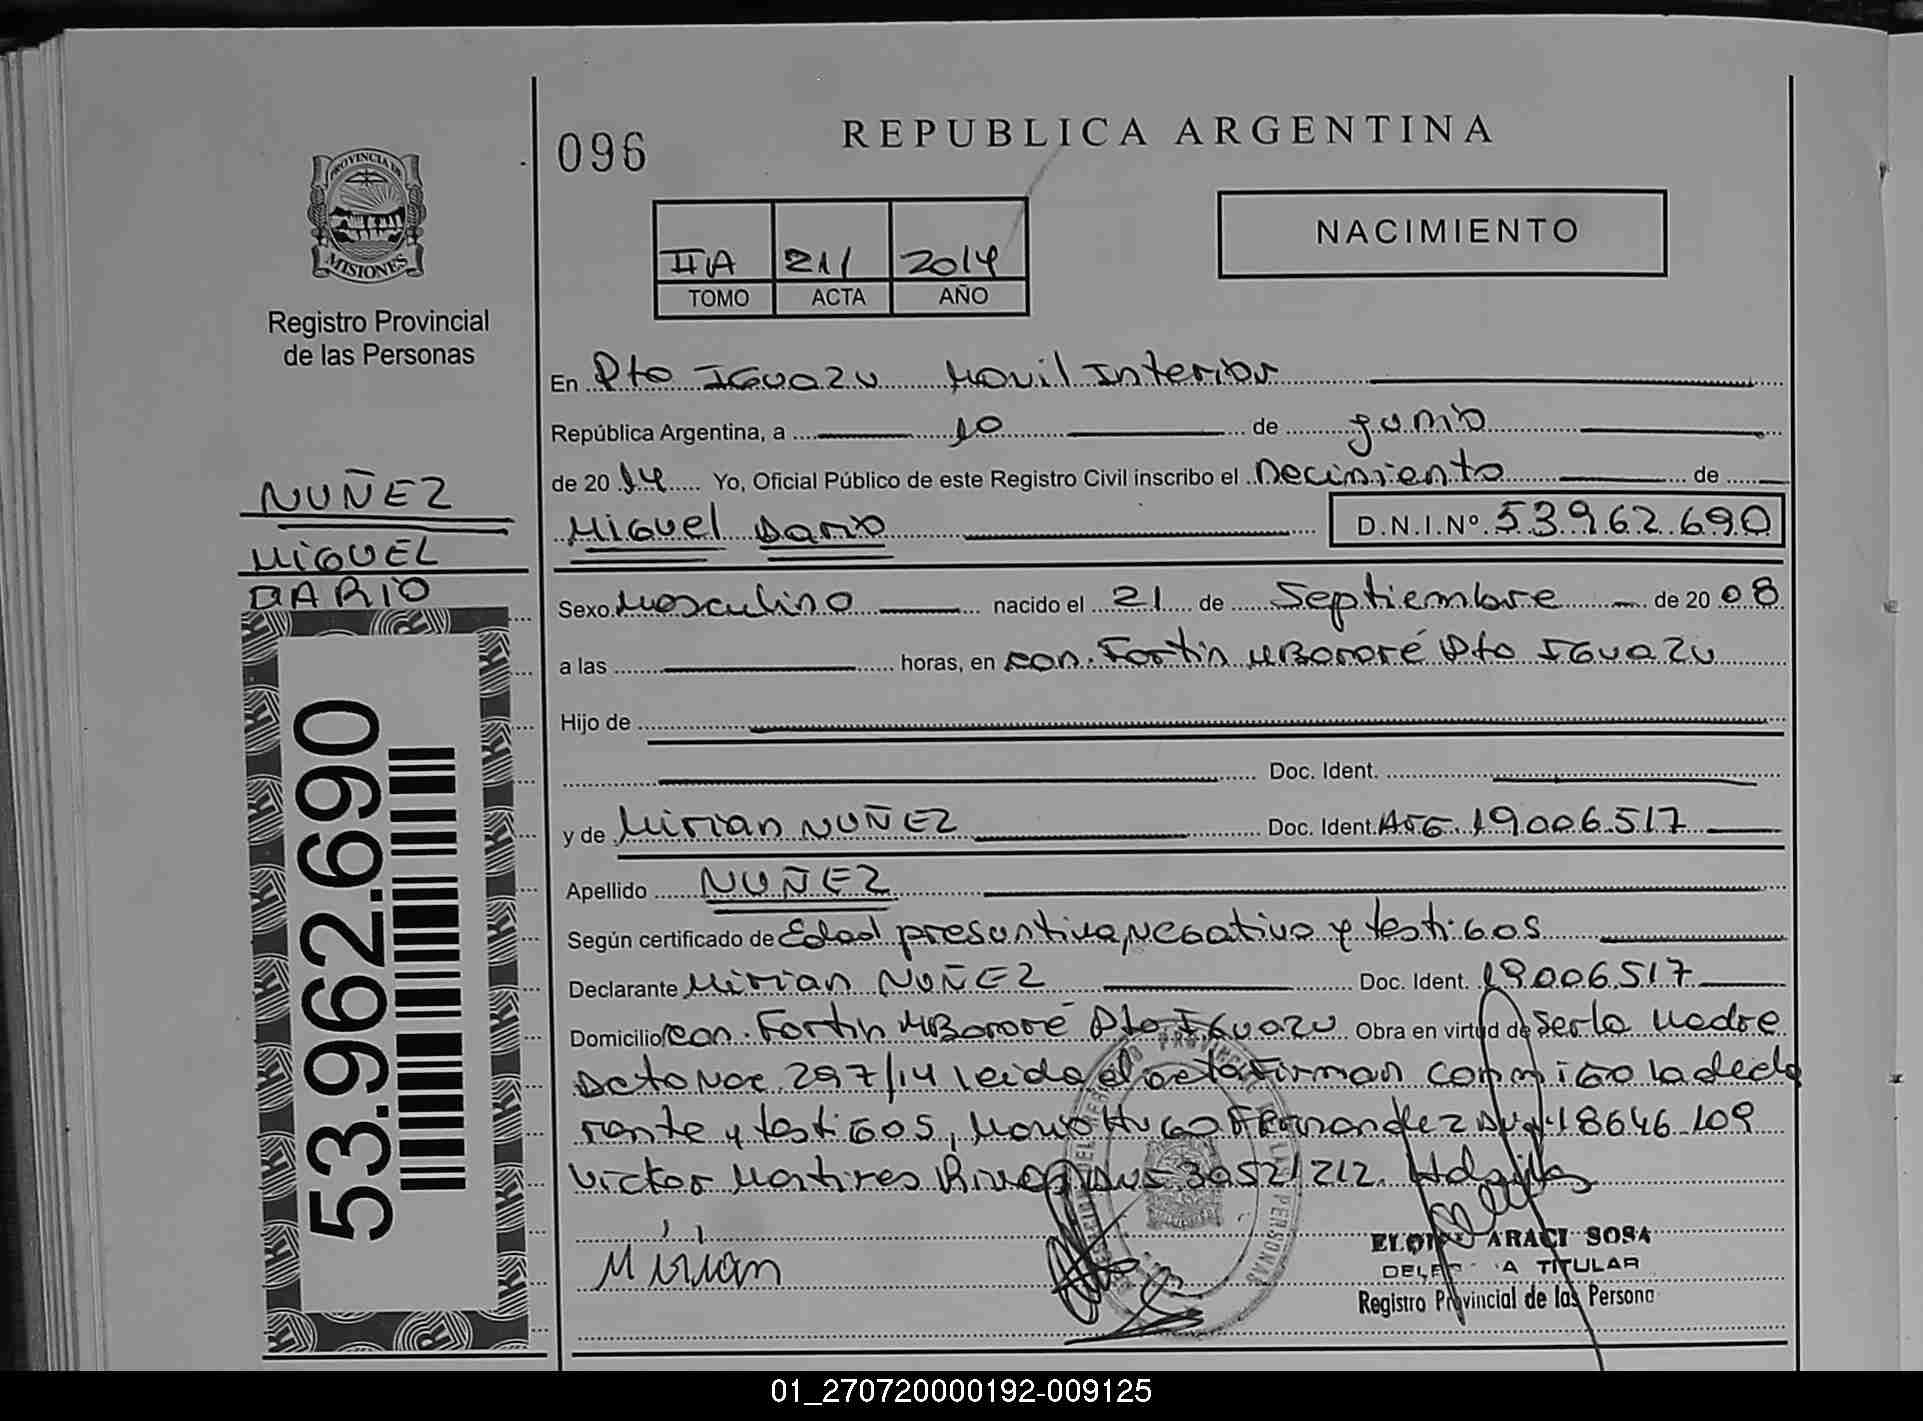 PROVINCIA DE
MISIONES
Registro Provincial
de las Personas
NUÑEZ
MIGUEL
DARIO
53.962.690
096
REPUBLICA ARGENTINA
IIA 211 2014
TOMO ACTA AÑO
NACIMIENTO
En Pto IGUAZU Movil Interior
República Argentina, a 10 de junio
de 2014 Yo, Oficial Público de este Registro Civil inscribo el Nacimiento de
Miguel Dario D.N.I.Nº 53.962.690
Sexo Masculino nacido el 21 de Septiembre de 2008
a las horas, en con. Fortin MBororé Pto IGUAZU
Hijo de
Doc. Ident.
y de Mirian NUÑEZ Doc. Ident. ARG 19006517
Apellido NUÑEZ
Según certificado de Edad presuntiva, negativa y testigos
Declarante Mirian NUÑEZ Doc. Ident. 19006517
Domicilio con. Fortin MBororé Pto IGUAZU Obra en virtud de ser la Madre
acta Nac 297/14 leida el acta firman conmigo la decla
rante y testigos, Mario Hugo Fernandez DNI 18646109
Victor Martires Rivero DNI 30521212.
Mirian
ARACI SOSA
TITULAR
Registro Provincial de las Persona
01_270720000192-009125